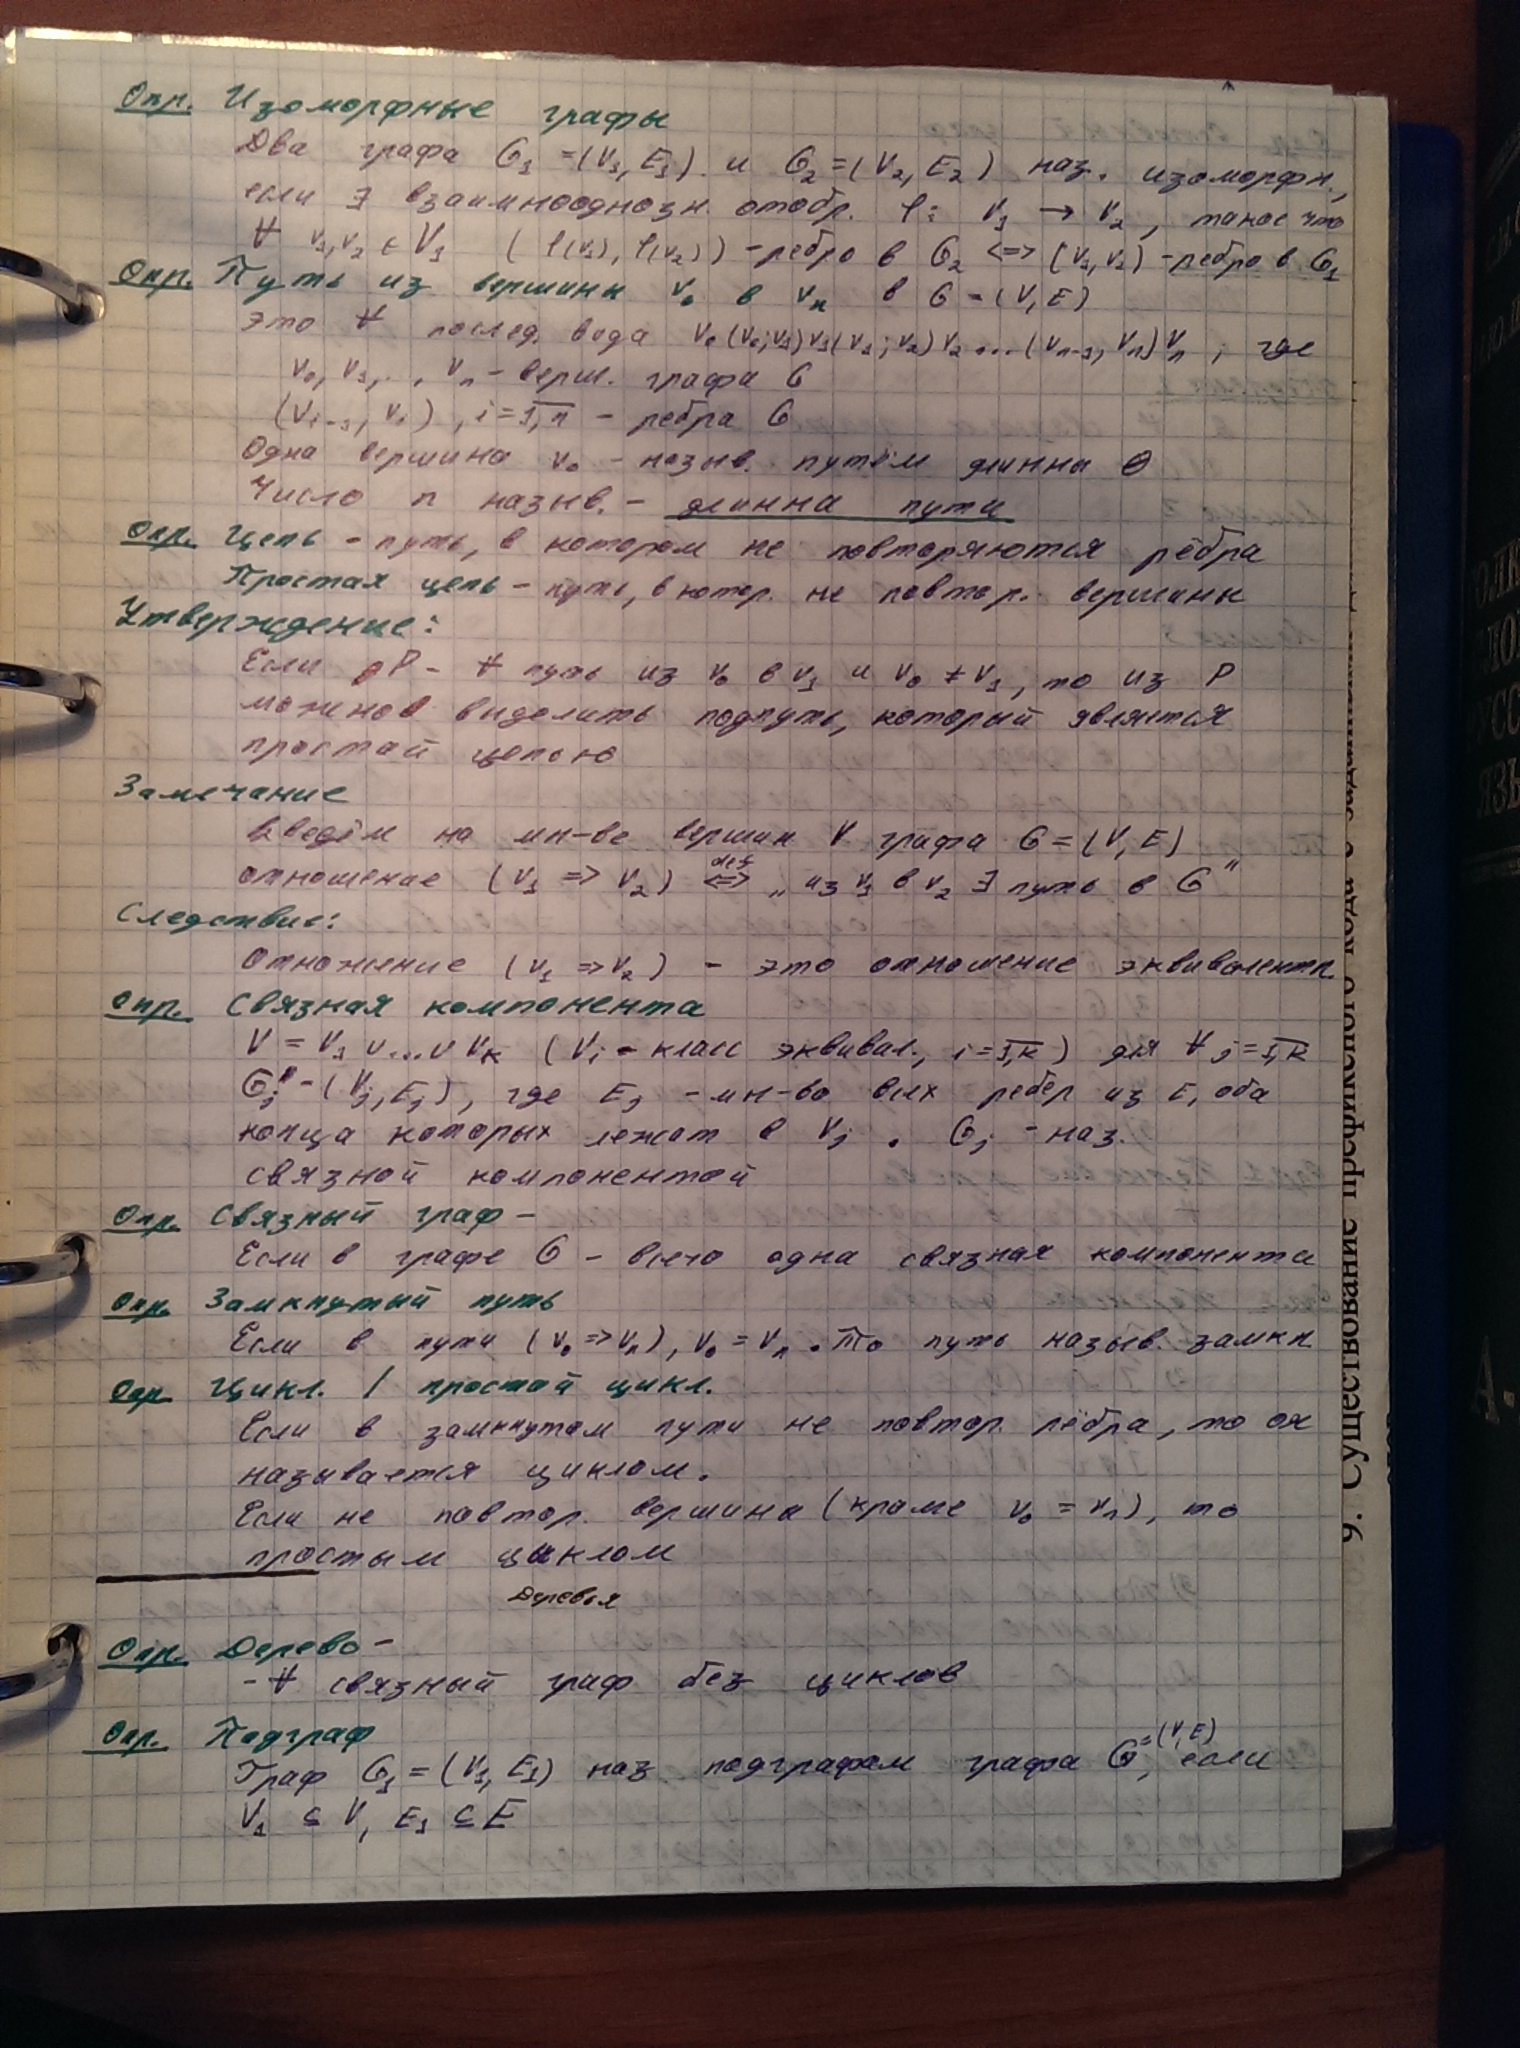 Опр. Изоморфные графы
Два графа G₁ = (V₁, E₁) и G₂ = (V₂, E₂) наз. изоморфн.,
если ∃ взаимнооднозн. отобр. φ: V₁ → V₂, такое что
∀ v₁, v₂ ∈ V₁ (φ(v₁), φ(v₂)) - ребро в G₂ <=> (v₁, v₂) - ребро в G₁
Опр. Путь из вершины v₀ в vₙ в G = (V, E)
это ∀ послед. вида v₀(v₀; v₁)v₁(v₁; v₂)v₂ ... (vₙ₋₁, vₙ)vₙ, где
v₀, v₁, .., vₙ - верш. графа G
(vᵢ₋₁, vᵢ), i = 1,n - ребра G
Одна вершина v₀ - назыв. путём длинны 0
Число n назыв. - длинна пути
Опр. Цепь - путь, в котором не повторяются рёбра
Простая цепь - путь, в котор. не повтор. вершины
Утверждение:
Если P - ∀ путь из v₀ в v₁ и v₀ ≠ v₁, то из P
можно выделить подпуть, который является
простой цепью
Замечание
Введём на мн-ве вершин V графа G = (V, E)
отношение (v₁ => v₂) def <=> „из v₁ в v₂ ∃ путь в G"
Следствие:
Отношение (v₁ => v₂) - это отношение эквивалентн.
Опр. Связная компонента
V = V₁ ∪ ... ∪ Vₖ (Vᵢ - класс эквивал., i = 1,k) для ∀ j = 1,k
Gⱼ - (Vⱼ, Eⱼ), где Eⱼ - мн-во всех ребер из E, оба
конца которых лежат в Vⱼ. Gⱼ - наз.
связной компонентой
Опр. Связный граф -
Если в графе G - всего одна связная компонента
Опр. Замкнутый путь
Если в пути (v₀ => vₙ), v₀ = vₙ. То путь назыв. замкн.
Опр Цикл. / простой цикл.
Если в замкнутом пути не повтор. рёбра, то он
называется циклом.
Если не повтор. вершина (кроме v₀ = vₙ), то
простым циклом
Деревья
Опр. Дерево -
- ∀ связный граф без циклов
Опр. Подграф
Граф G₁ = (V₁, E₁) наз подграфом графа G = (V, E), если
V₁ ⊆ V, E₁ ⊆ E
9. Существование префиксного кода с
А.